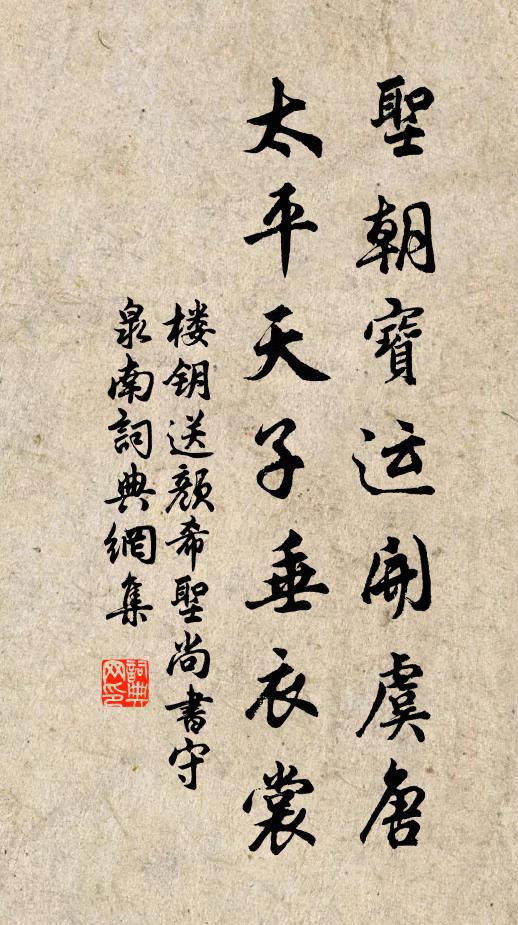 聖朝寶运開虞唐
太平天子垂衣裳
楼钥送颜希聖尚書守
泉南詞典網集
詞典网印